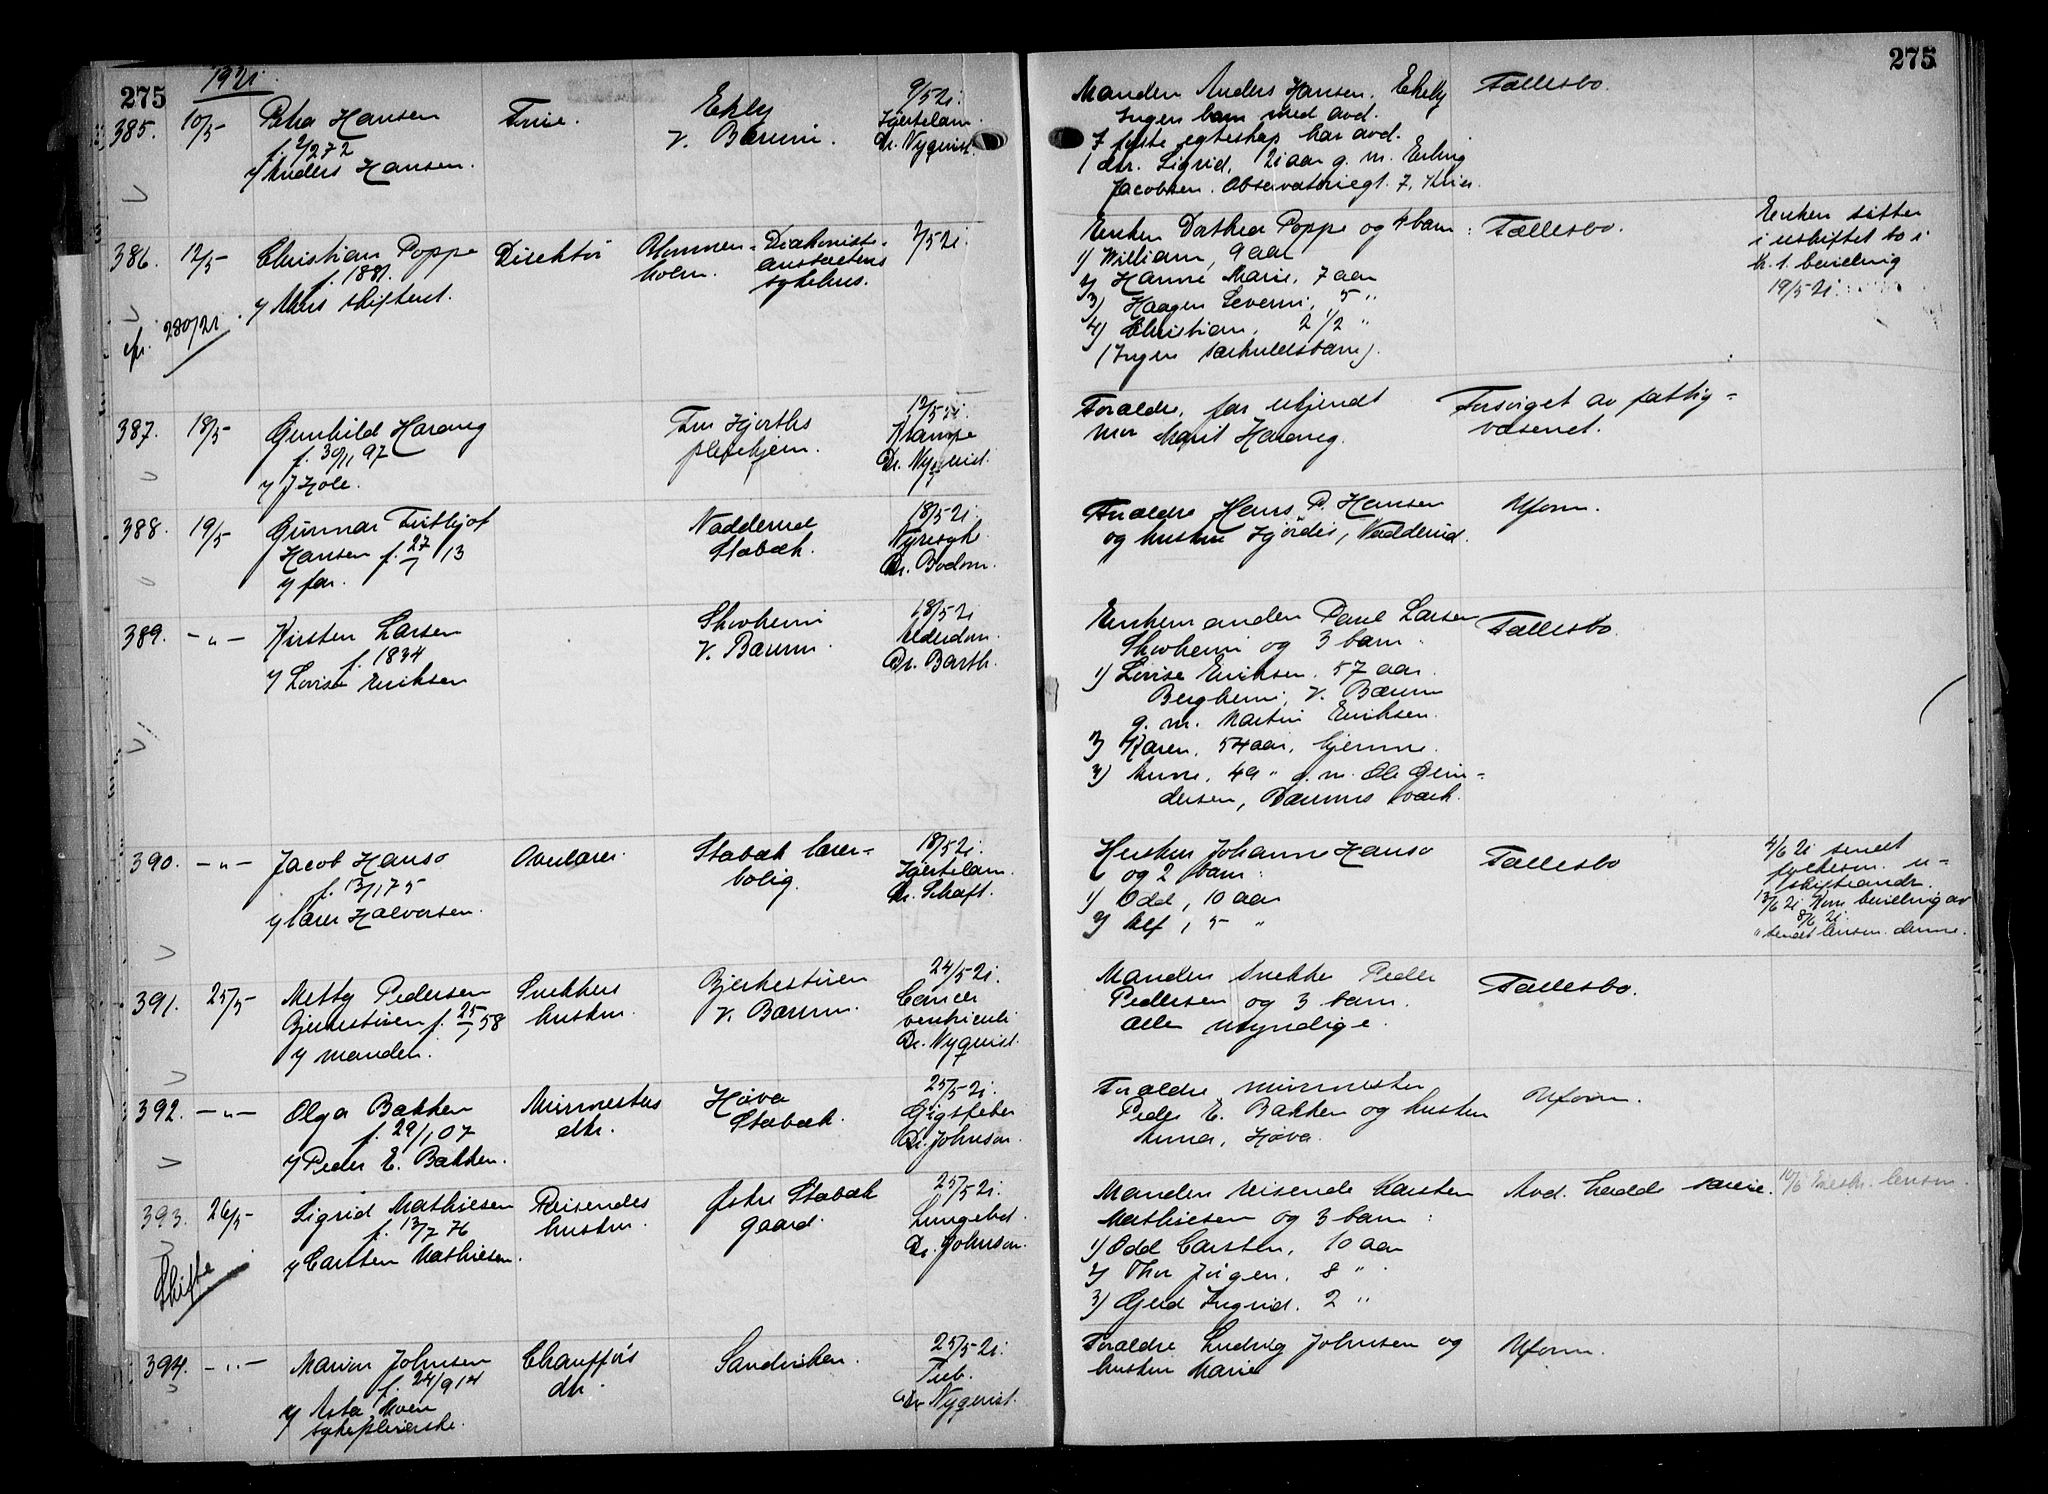 275
1921
385. 10/5 Petra Hansen Frue. Ekely 9/5 21.
f. 2/2 72 V. Bærum. Hjertelam.
v/ Anders Hansen. Dr. Nyquist.
Manden Anders Hansen, Ekely Fællesbo.
Ingen barn med avd.
I første egteskap har avd.
1 dtr. Sigrid, 21 aar g. m. Erling
Jacobsen. Observatoriegt. 7, Kria.
386. 12/5 Christian Poppe Direktør Blommen- Diakonisse- 7/5 21
f. 1881. holm. anstaltens
v/ Mars skifteret. sykehus.
280/21
Enken Dorthea Poppe og 4 barn: Fællesbo. Enken sitter
1) William, 9 aar i uskiftet bo i
2) Hanna Marie, 7 aar h. t. bevilling
3) Haagen Severin, 5 " 19/5 21.
4) Christian, 2 1/2 "
(Ingen særkuldsbarn).
387. 18/5 Gunhild Harang Fru Hjorths 12/5 21.
f. 30/1 97 pleiehjem. Krampe
v/ J Hole. Dr. Nyquist.
Forældre, far ukjendt Forsørget av fattig-
mor Marit Harang. væsenet.
388. 19/5 Gunnar Fritjof Nadderud 18/5 21.
Hansen f. 27/1 13 Stabæk. Nyresyk
v/ far. Dr. Bodom.
Forældre Hans P. Hansen Uform.
og hustru Hjørdis, Nadderud.
389. -"- Kirsten Larsen Skovheim 18/5 21
f. 1834 V. Bærum. Alderdom.
v/ Lovise Eriksen Dr. Barth.
Enkemanden Paul Larsen Fællesbo.
Skovheim og 3 barn.
1) Lovise Eriksen, 57 aar.
Bergheim, V. Bærum
g. m. Martin Eriksen.
2) Karen, 54 aar, hjemme.
3) Anne, 49 " g. m. Ole Gun-
dersen, Bærums Værk.
390. -"- Jacob Hansø Overlærer. Stabæk lærer- 18/5 21.
f. 13/1 75 bolig. Hjertelam.
v/ lærer Halvorsen. Dr. Schaft.
Hustru Johanne Hansø Fællesbo 4/6 21 sendt
og 2 barn: fylkesm. u-
1) Odd, 10 aar skifteandr.
2) Alf, 5 " 13/6 21 bevilling av
8/6 21.
" sendt lensm. denne.
391. 25/5 Metty Pedersen Snekkers Bjerkestuen 24/5 21.
Bjerkestuen f. 25/1 58 hustru. V. Bærum. Cancer
v/ manden. ventriculi
Dr. Nyquist.
Manden snekker Peder Fællesbo.
Pedersen og 3 barn.
alle myndige.
392. -"- Olga Bakken Murmesters Høva 25/5 21.
f. 29/1 07 dtr. Stabæk. Gigtfeber
v/ Peder E. Bakken. Dr. Johnson.
Forældre murmester Uform.
Peder E. Bakken og hustru
Anna, Høva.
393. 26/5 Sigrid Mathiesen Reisendes Østre Stabæk 25/5 21.
f. 13/7 76 hustru. gaard. Lungebet.
v/ Carsten Mathiesen. Dr. Johnson.
Skifte
Manden reisende Karsten Avd. hadde særeie. 10/6 lensm.
Mathiesen og 3 barn:
1) Odd Carsten, 10 aar
2) Thor Jørgen, 8 "
3) Gerd Ingrid. 2 "
394. -"- Marion Johnsen Chaufførs Sandviken. 25/5 21.
f. 24/9 14 dtr. Tub.
v/ Asta Moen Dr. Nyquist.
sykepleierske.
Forældre Ludvig Johnsen og Uform.
hustru Marie
275